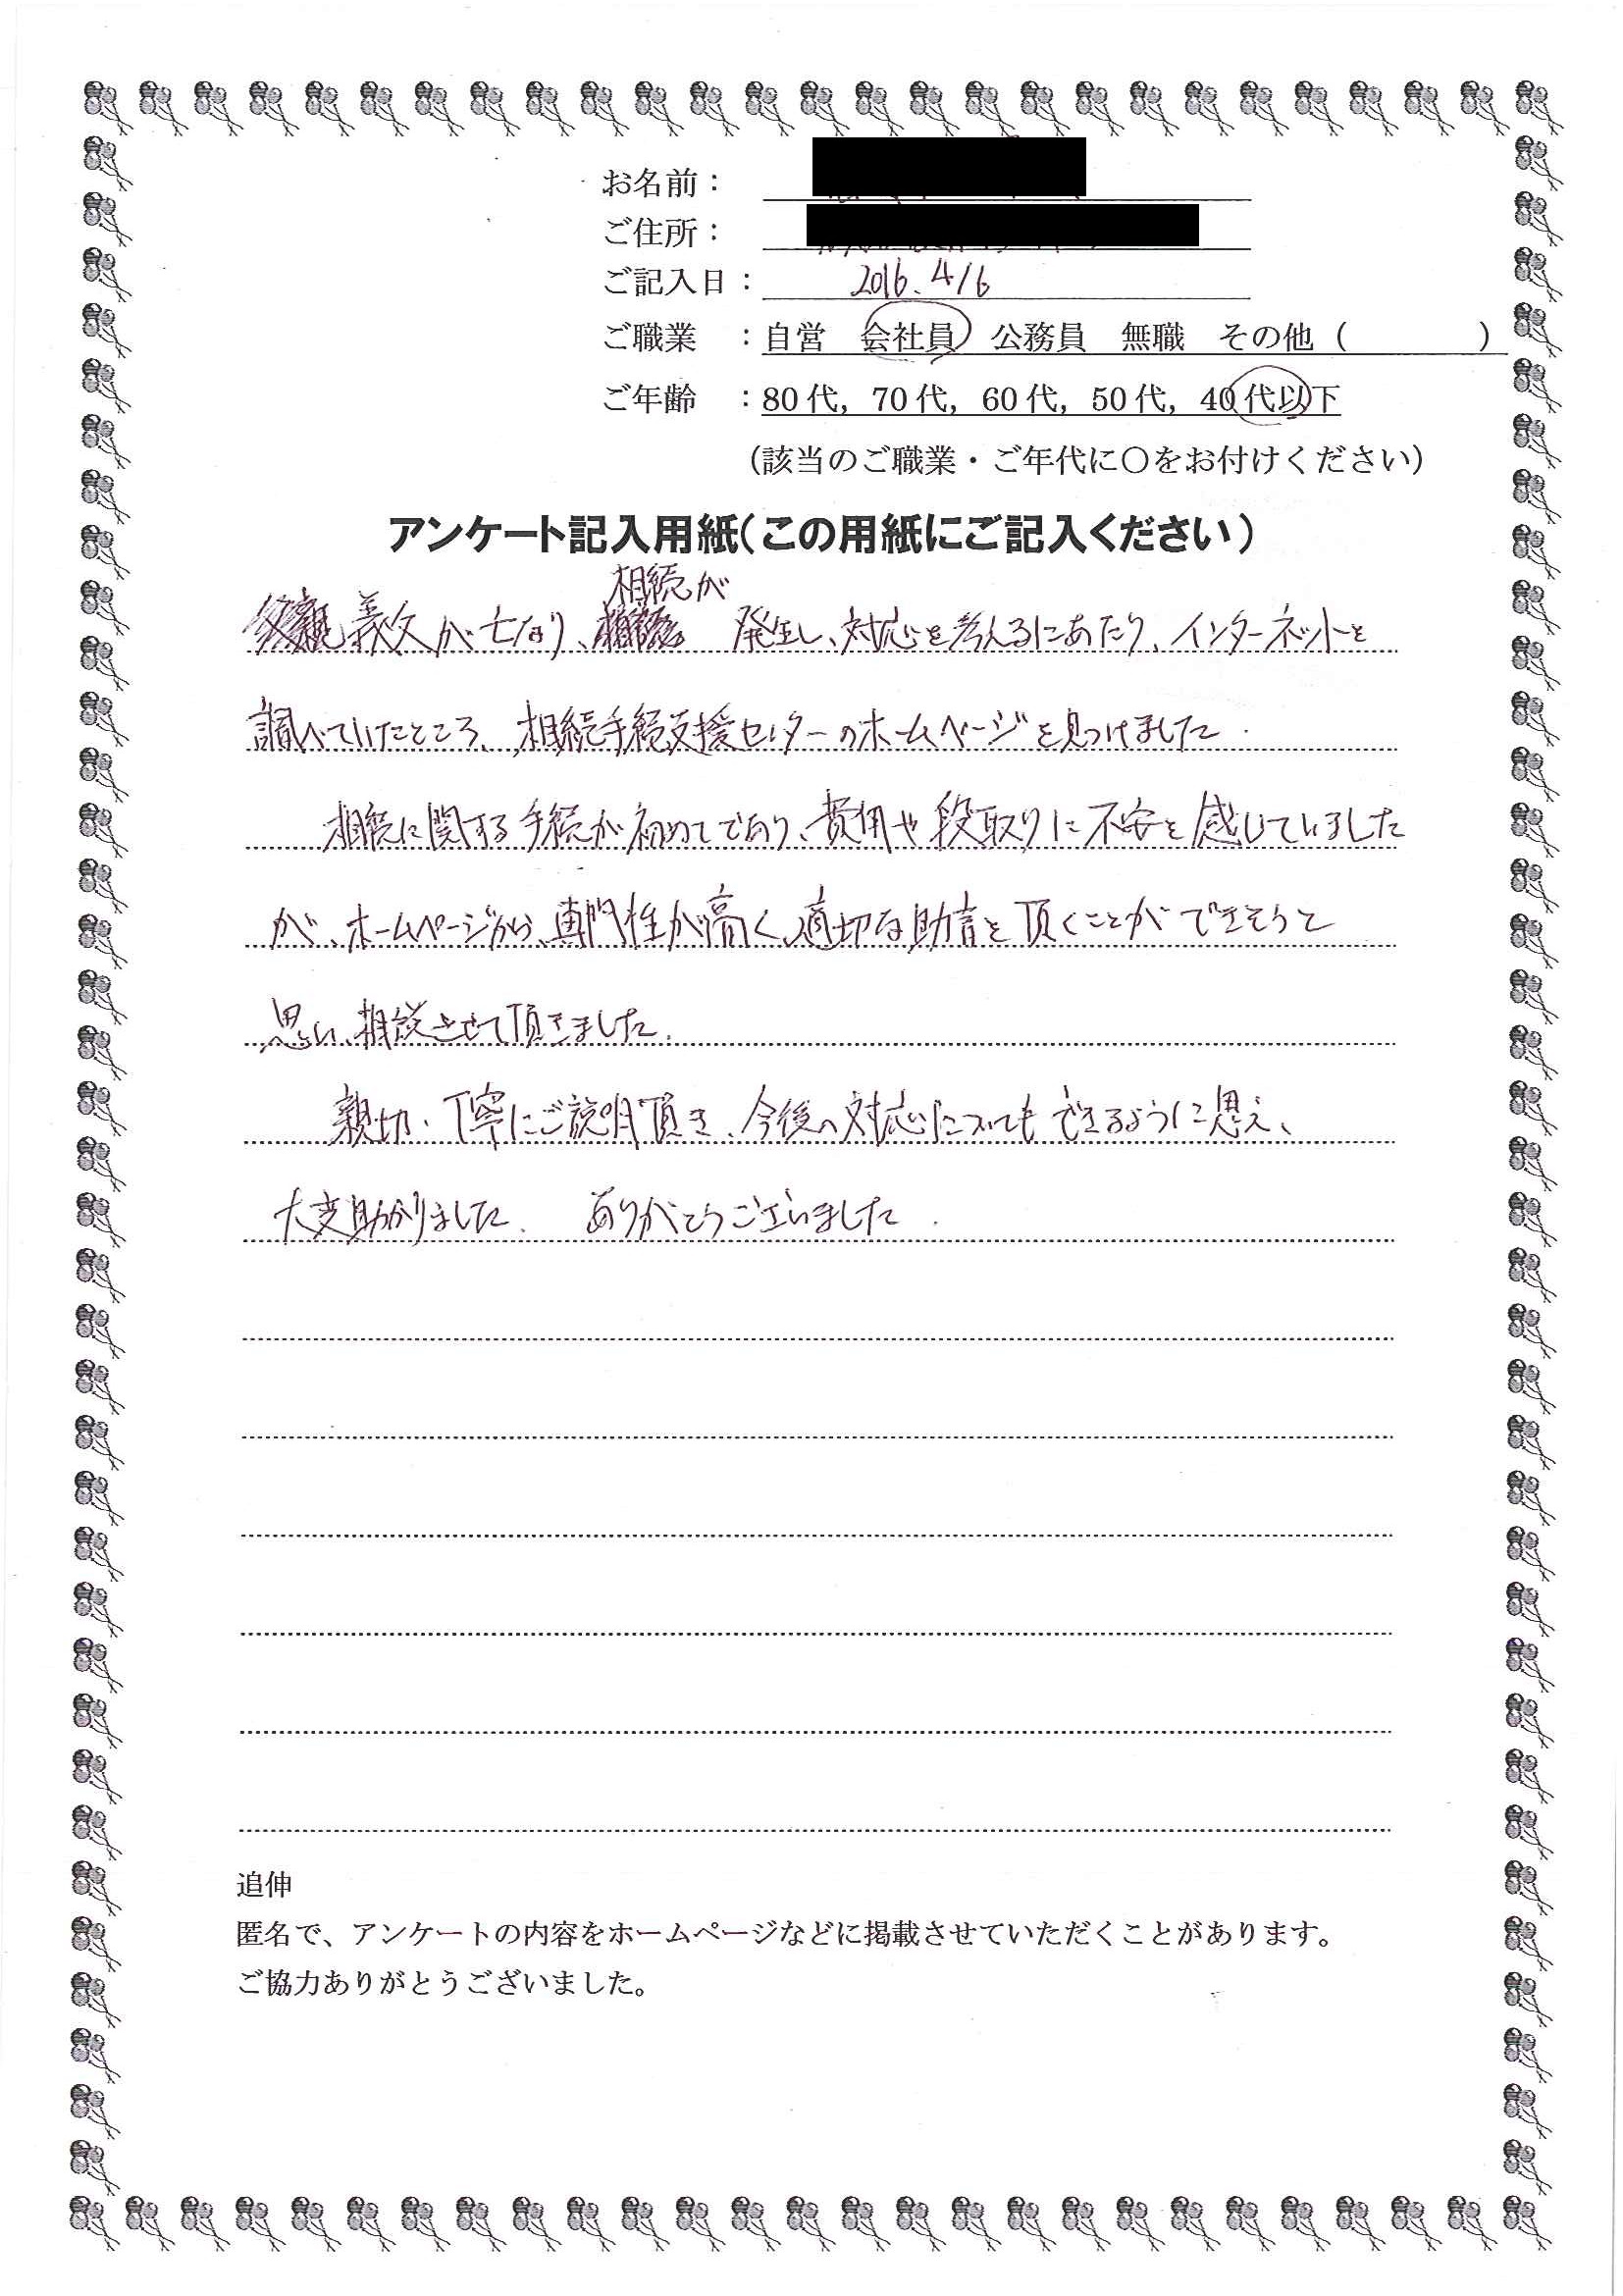 お名前：
ご住所：
ご記入日： 2016. 4/6
ご職業 ：自営 会社員 公務員 無職 その他（ ）
ご年齢 ：80代，70代，60代，50代，40代以下
（該当のご職業・ご年代に〇をお付けください）
アンケート記入用紙（この用紙にご記入ください）
相続が
義父が亡なり、 発生し、対応を考えるにあたり、インターネットを
調べていたところ、相続手続支援センターのホームページを見つけました.
相続に関する手続が初めてであり、費用や段取りに不安を感じていました
が、ホームページから、専門性が高く、適切な助言を頂くことができそうと
思い、相談させて頂きました.
親切、丁寧にご説明頂き、今後の対応についてもできるように思え、
大変助かりました. ありがとうございました.
追伸
匿名で、アンケートの内容をホームページなどに掲載させていただくことがあります。
ご協力ありがとうございました。